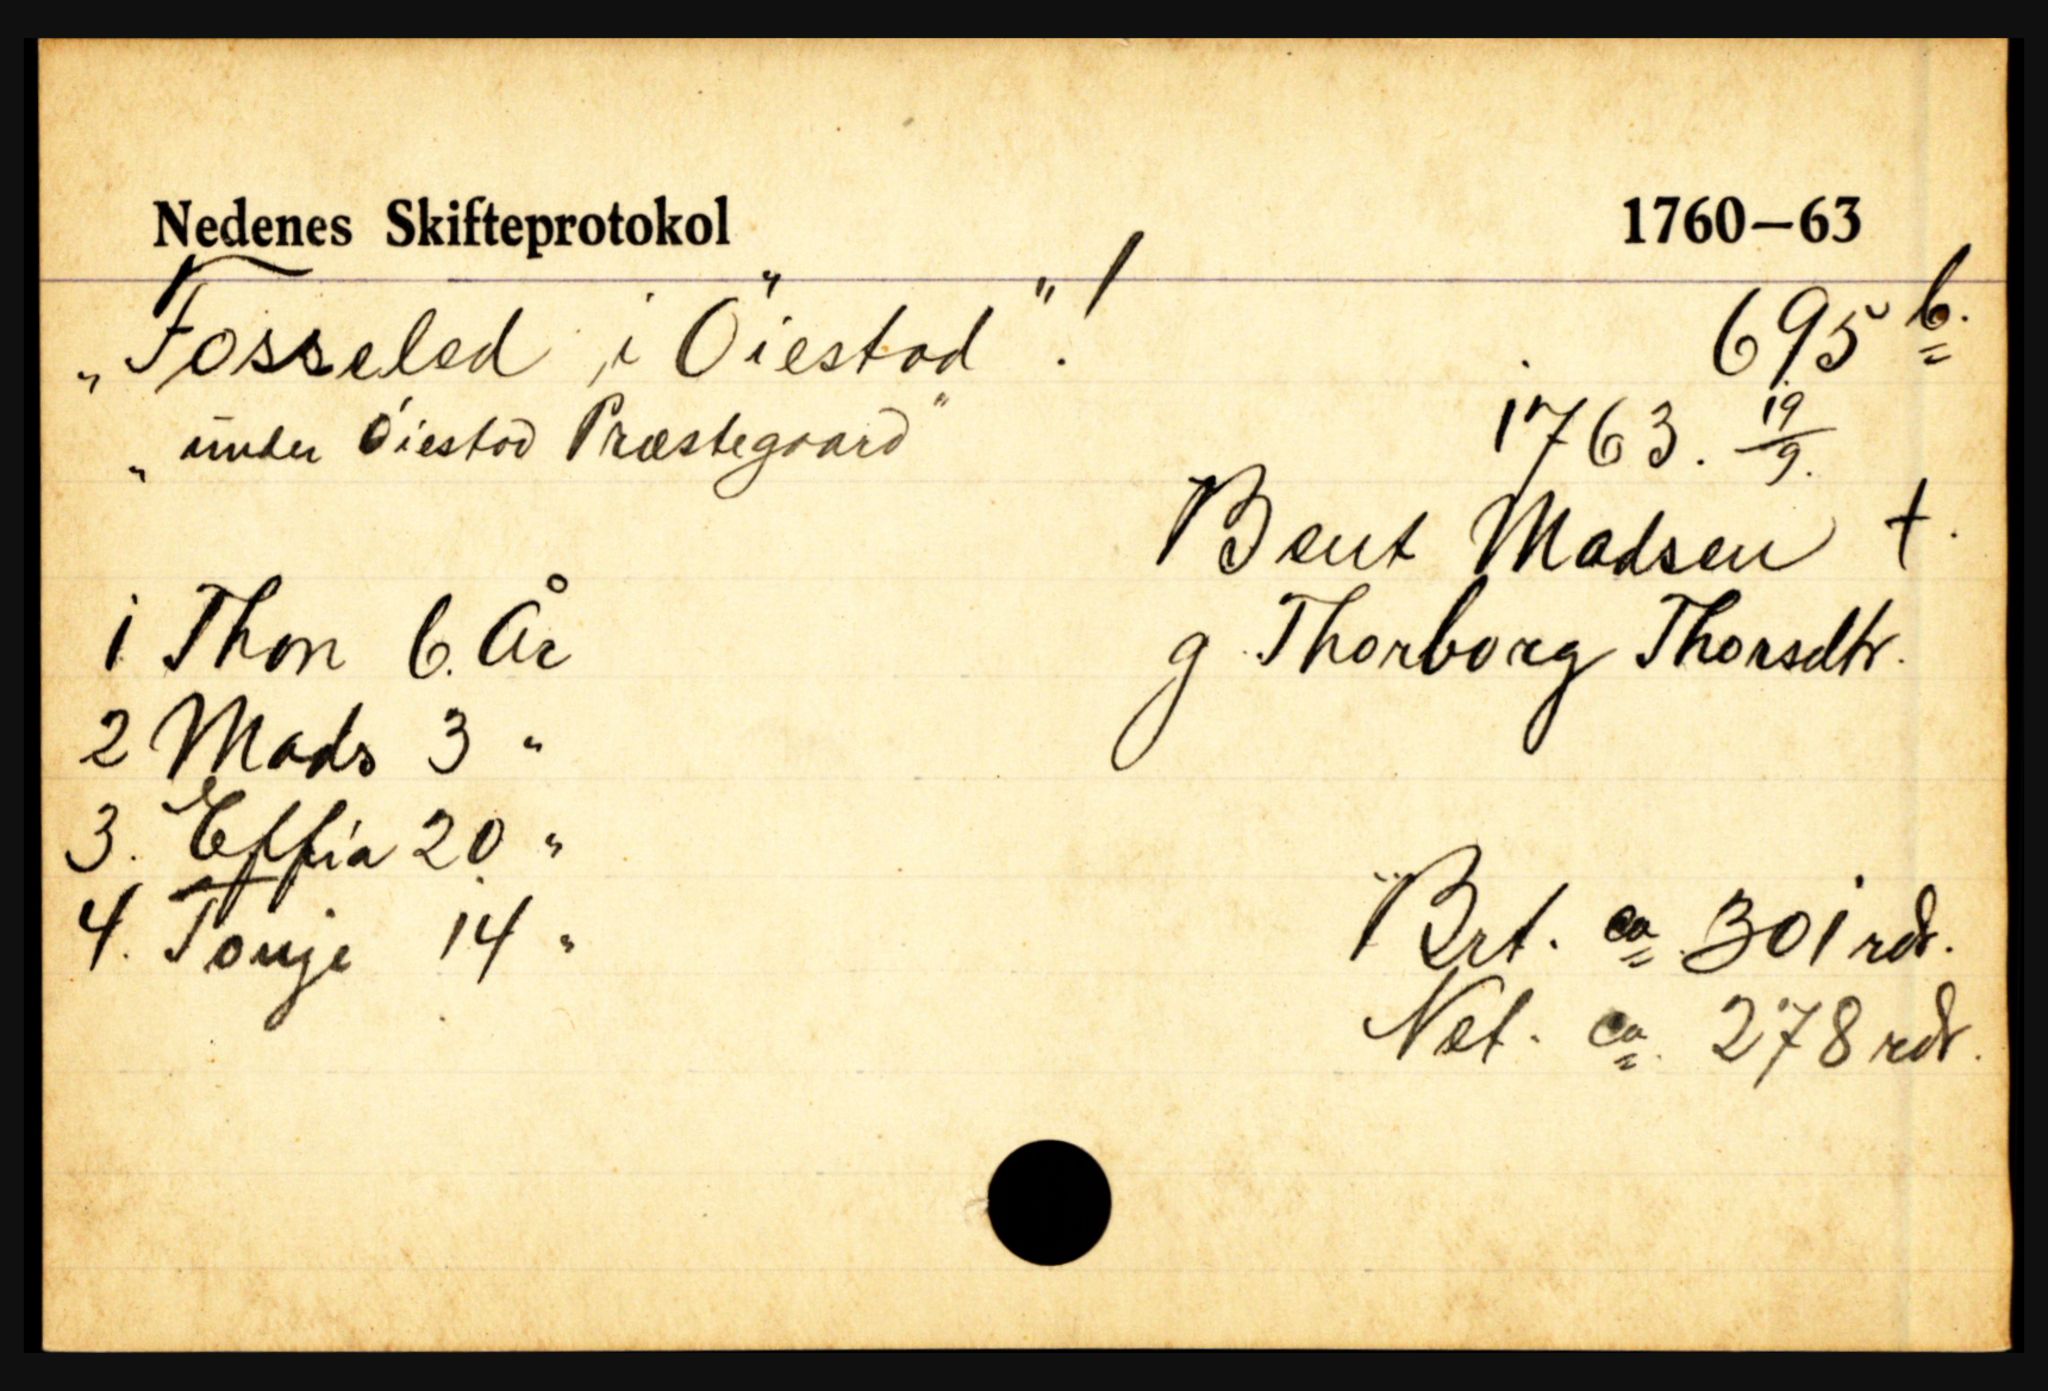 Nedenes Skifteprotokol 1760–63
„Fosseled i Öiestad". !
695 b.
„under Öiestad Præstegaard"
1763. 19/9.
Bent Madsen †.
1 Thon 6. År
g. Thorborg Thorsdtr.
2 Mads 3 "
3. Effia 20 "
4. Tonje 14 "
Brt. ca 301 rdr.
Net. ca. 278 rdr.